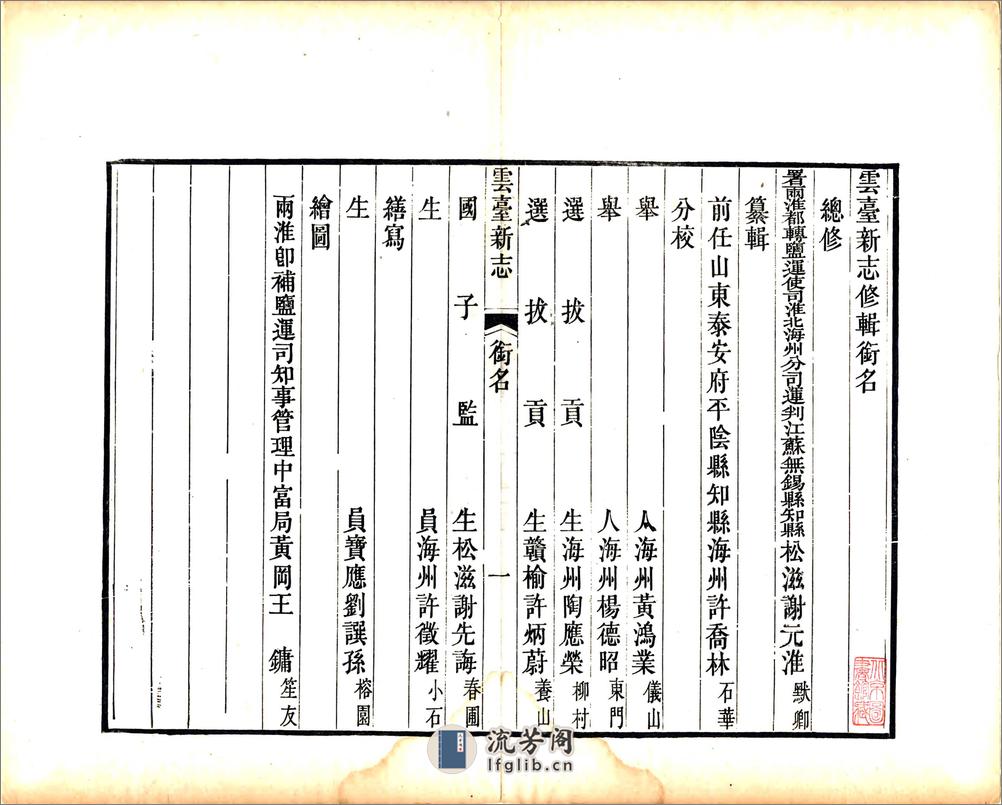 雲臺新志修輯銜名
總修
署兩淮都轉鹽運使司淮北海州分司運判江蘇無錫縣知縣松滋謝元淮默卿
纂輯
前任山東泰安府平陰縣知縣海州許喬林石華
分校
舉人海州黃鴻業儀山
舉人海州楊德昭東門
選拔貢生海州陶應榮柳村
選拔貢生贛榆許炳蔚養山
雲臺新志 銜名 一
國子監生松滋謝先誨春圃
生員海州許徵耀小石
繕寫
生員寶應劉譔孫榕園
繪圖
兩淮即補鹽運司知事管理中富局黃岡王鏞笙友
流芳阁
lfglib.cn